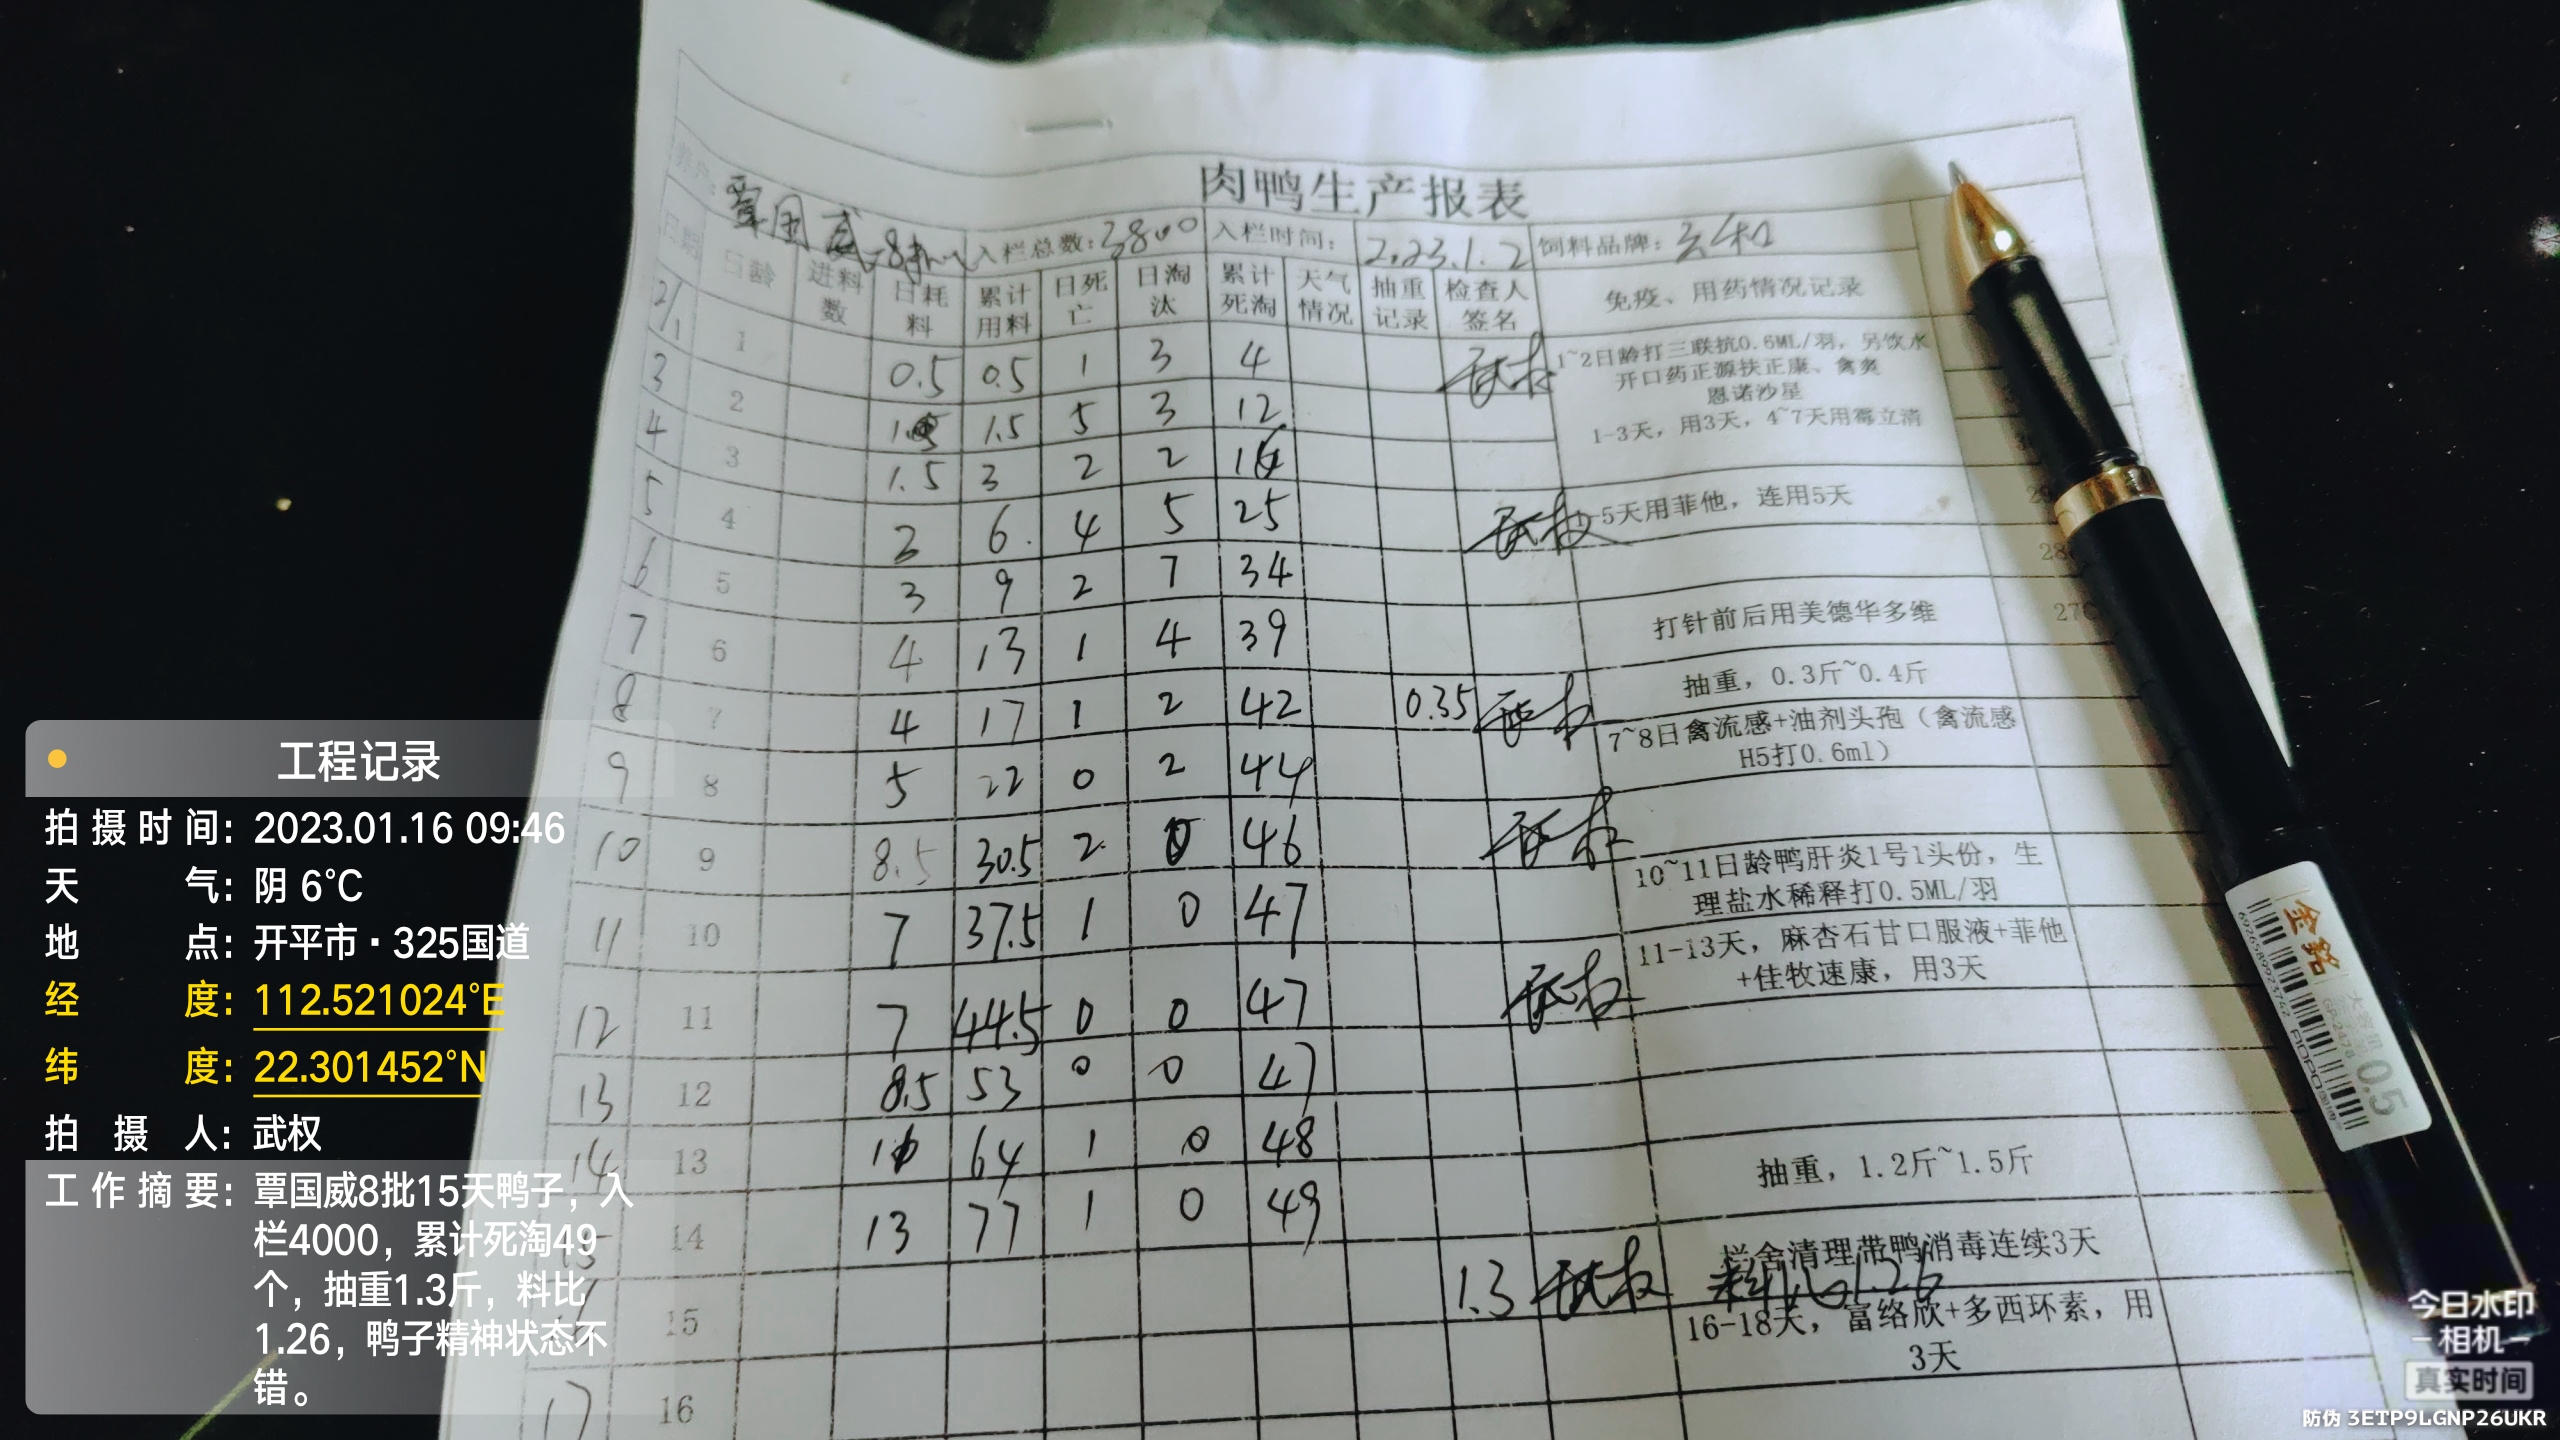 肉鸭生产报表
养户: 覃国威-8批 入栏总数: 3800 入栏时间: 2023.1.2 饲料品牌:
日期 日龄 进料数 日耗料 累计用料 日死亡 日淘汰 累计死淘 天气情况 抽重记录 检查人签名 免疫、用药情况记录
2/1 1 0.5 0.5 1 3 4 武权
3 2 1 1.5 5 3 12
4 3 1.5 3 2 2 16
5 4 3 6. 4 5 25 武权
6 5 3 9 2 7 34
7 6 4 13 1 4 39
8 7 4 17 1 2 42 0.35 武权
9 8 5 22 0 2 44
10 9 8.5 30.5 2 0 46 武权
11 10 7 37.5 1 0 47
12 11 7 44.5 0 0 47 武权
13 12 8.5 53 0 0 47
14 13 11 64 1 0 48
15 14 13 77 1 0 49
15 1.3 武权 料比1.26
17 16
1~2日龄打三联抗0.6ML/羽, 另饮水
开口药正源扶正康、禽炎
恩诺沙星
1-3天, 用3天, 4~7天用霉立清
-5天用菲他, 连用5天
打针前后用美德华多维
抽重, 0.3斤~0.4斤
7~8日禽流感+油剂头孢 (禽流感
H5打0.6ml)
10~11日龄鸭肝炎1号1头份, 生
理盐水稀释打0.5ML/羽
11-13天, 麻杏石甘口服液+菲他
+佳牧速康, 用3天
抽重, 1.2斤~1.5斤
栏舍清理带鸭消毒连续3天
16-18天, 富络欣+多西环素, 用
3天
金铭
0.5
6926589923742
工程记录
拍摄时间: 2023.01.16 09:46
天气: 阴 6°C
地点: 开平市·325国道
经度: 112.521024°E
纬度: 22.301452°N
拍摄人: 武权
工作摘要: 覃国威8批15天鸭子, 入
栏4000, 累计死淘49
个, 抽重1.3斤, 料比
1.26, 鸭子精神状态不
错。
今日水印
-相机-
真实时间
防伪 3ETP9LGNP26UKR